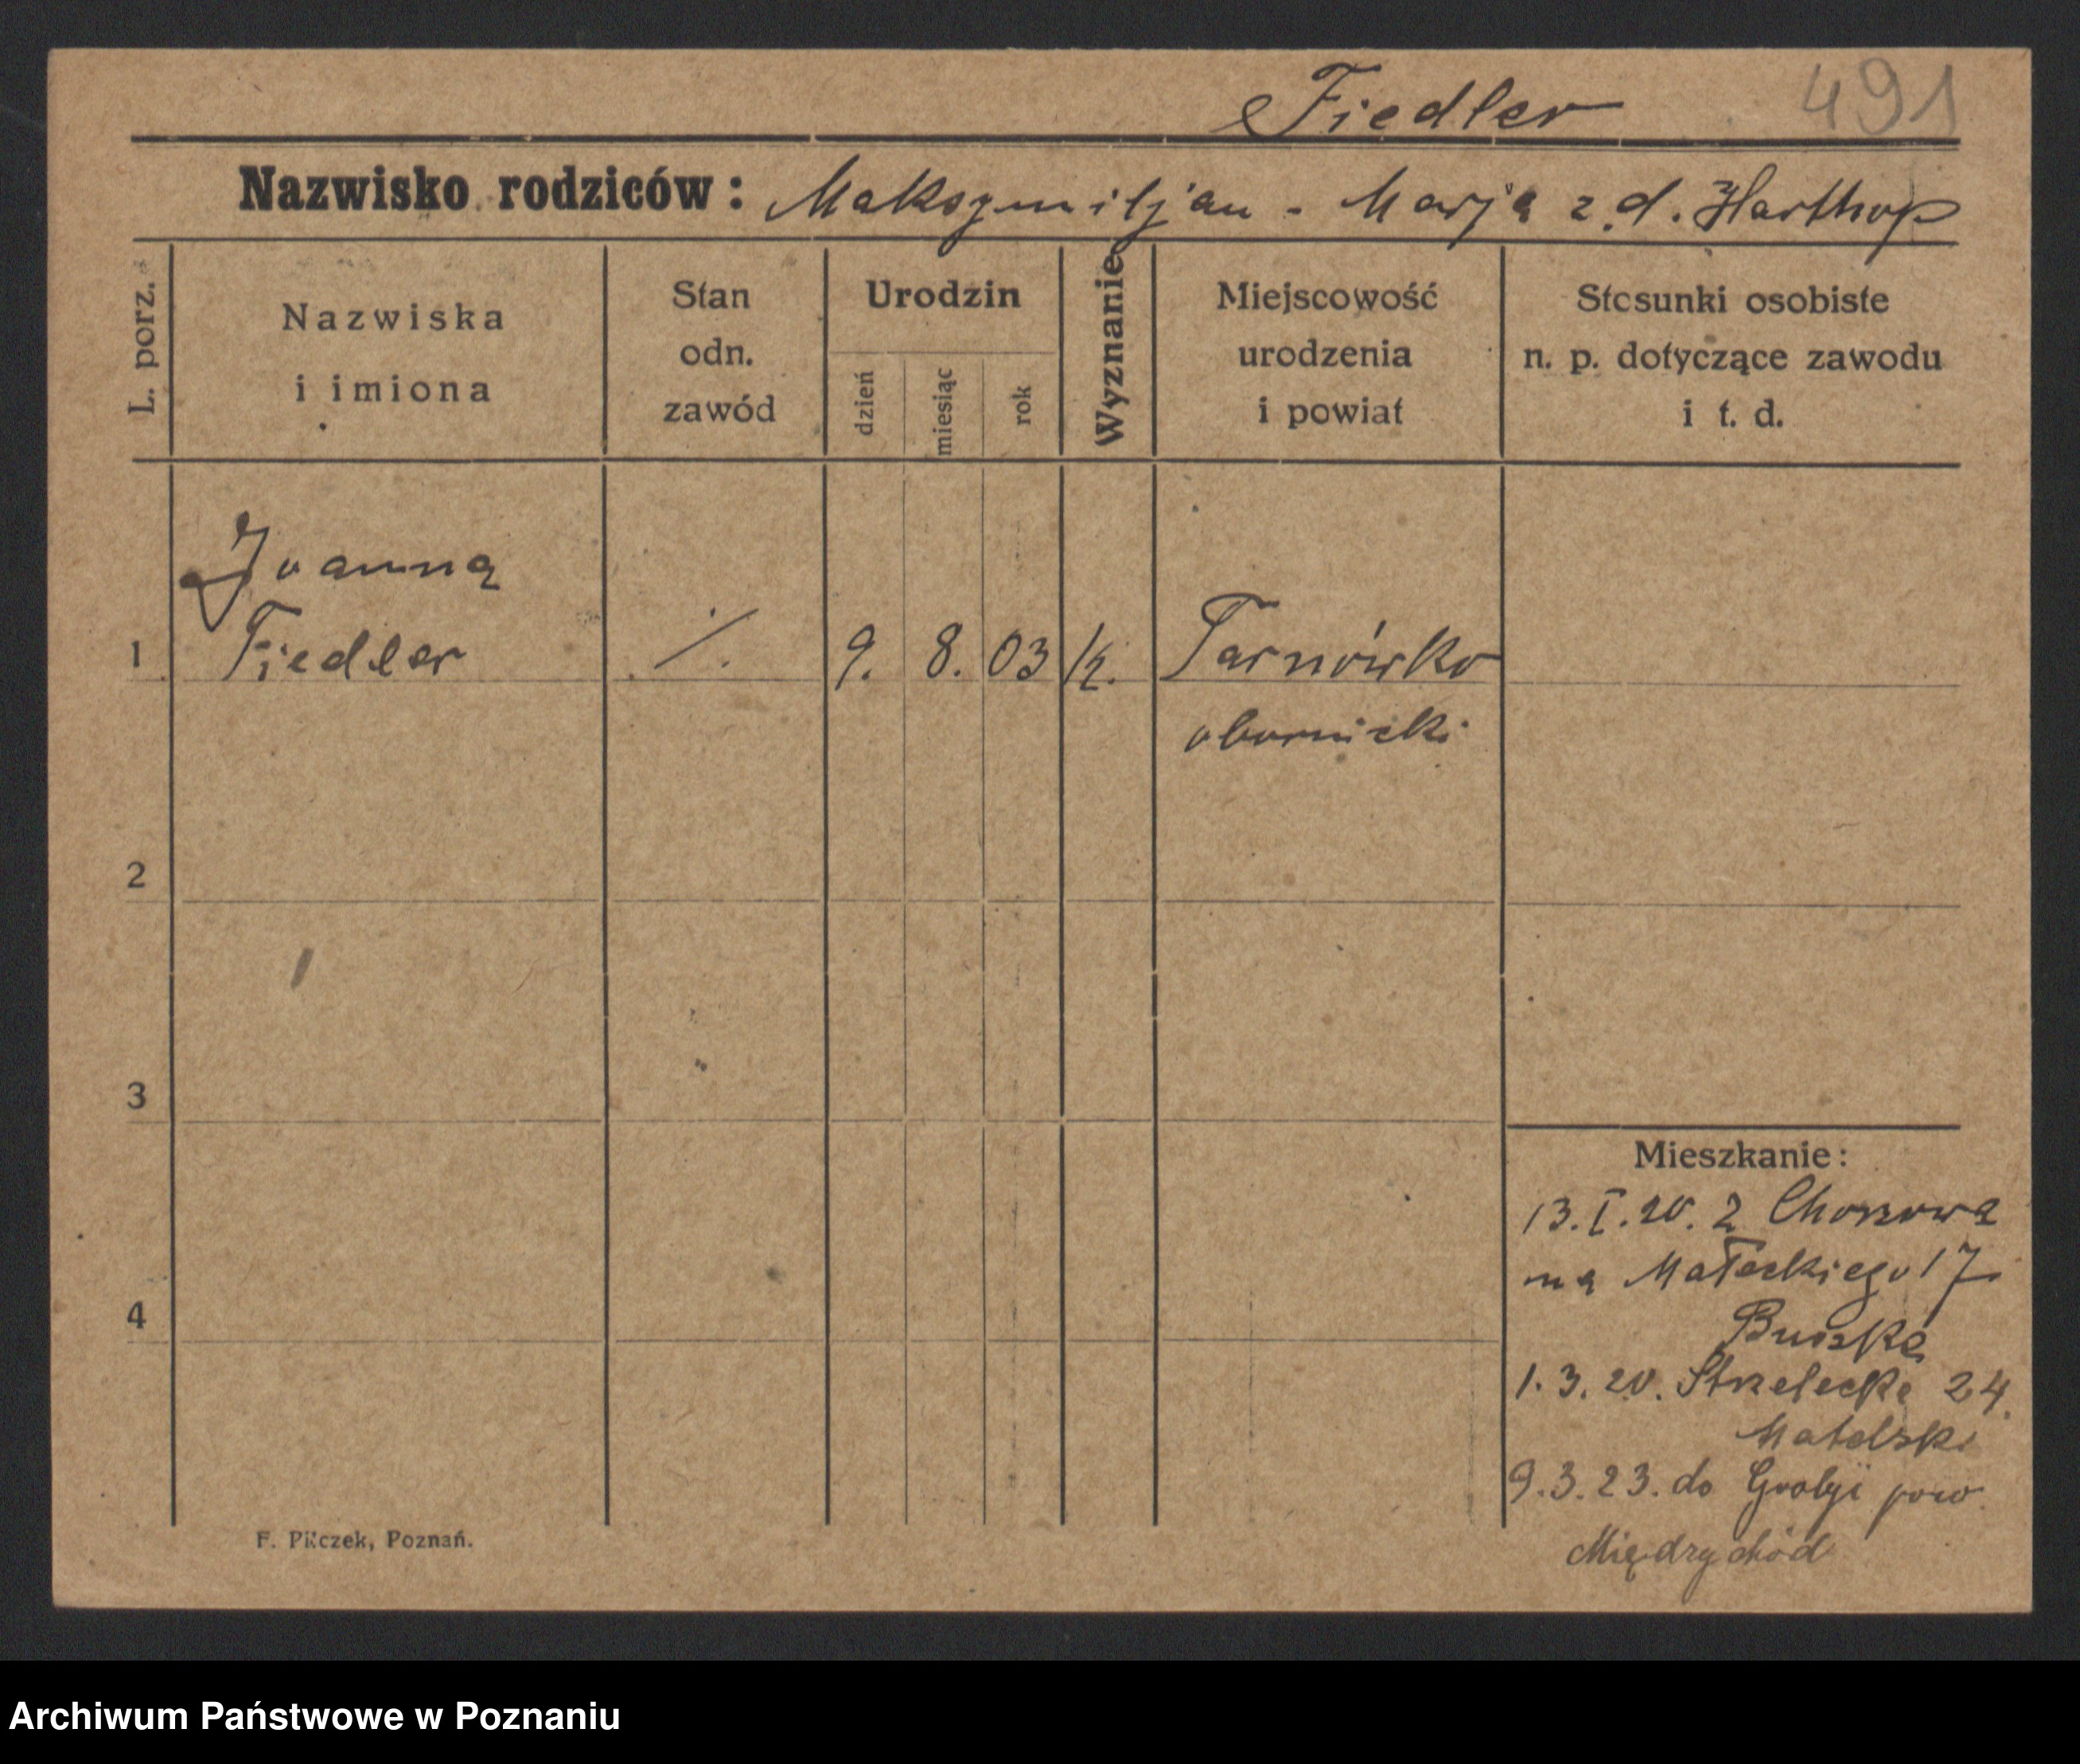 Fiedler 491
Nazwisko rodziców: Maksymiljan - Marja z d. Harthop
L. porz.
Nazwiska
i imiona
Stan
odn.
zawód
Urodzin
dzień
miesiąc
rok
Wyznanie
Miejscowość
urodzenia
i powiat
Stosunki osobiste
n. p. dotyczące zawodu
i t. d.
Joanna
1 Fiedler ./. 9. 8. 03 k. Tarnówko
obornicki
2
3
4
Mieszkanie:
13.I.20. z
na Małeckiego 17
1.3.20. Strzelecka 24.
Matelski
9.3.23. do pow.
Międzychód
F. Pilczek, Poznań.
Archiwum Państwowe w Poznaniu